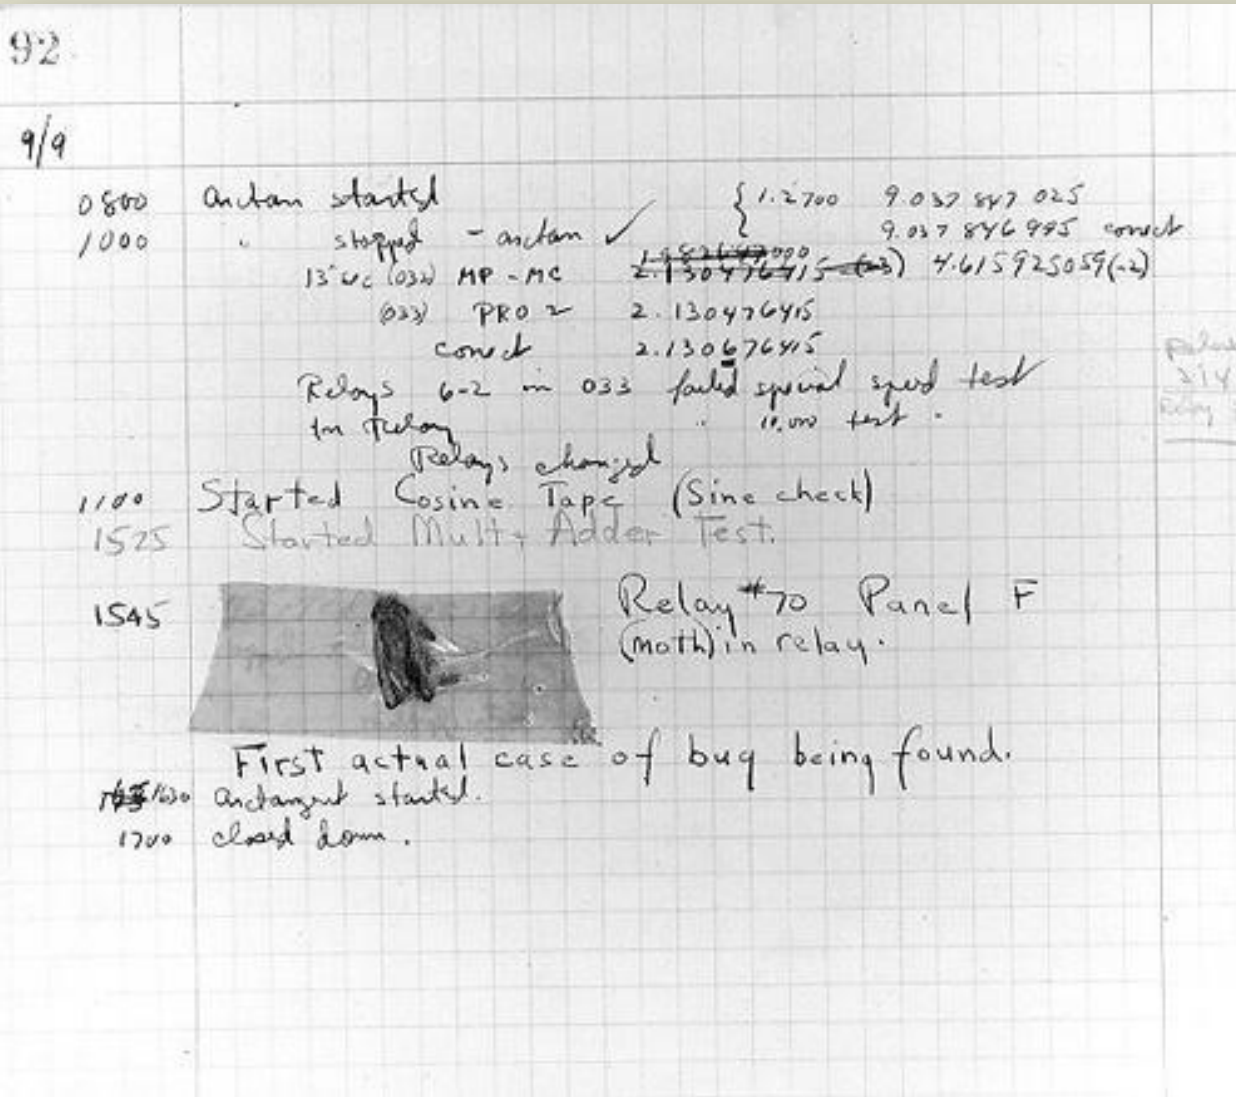 92
9/9
0800 Antan started { 1.2700 9.037 847 025
1000 " stopped - antan ✓ 9.037 846 995 conect
13" uc (032) MP - MC 2.130476415 (-3) 4.615925059(-2)
(033) PRO 2 2.130476415
conect 2.130676415
Relays 6-2 in 033 failed special speed test
In Relay " 10,000 test.
Relays changed
1100 Started Cosine Tape (Sine check)
1525 Started Mult+ Adder Test.
1545 Relay #70 Panel F
(moth) in relay.
First actual case of bug being found.
1630 Arctangent started.
1700 closed down.
Relay